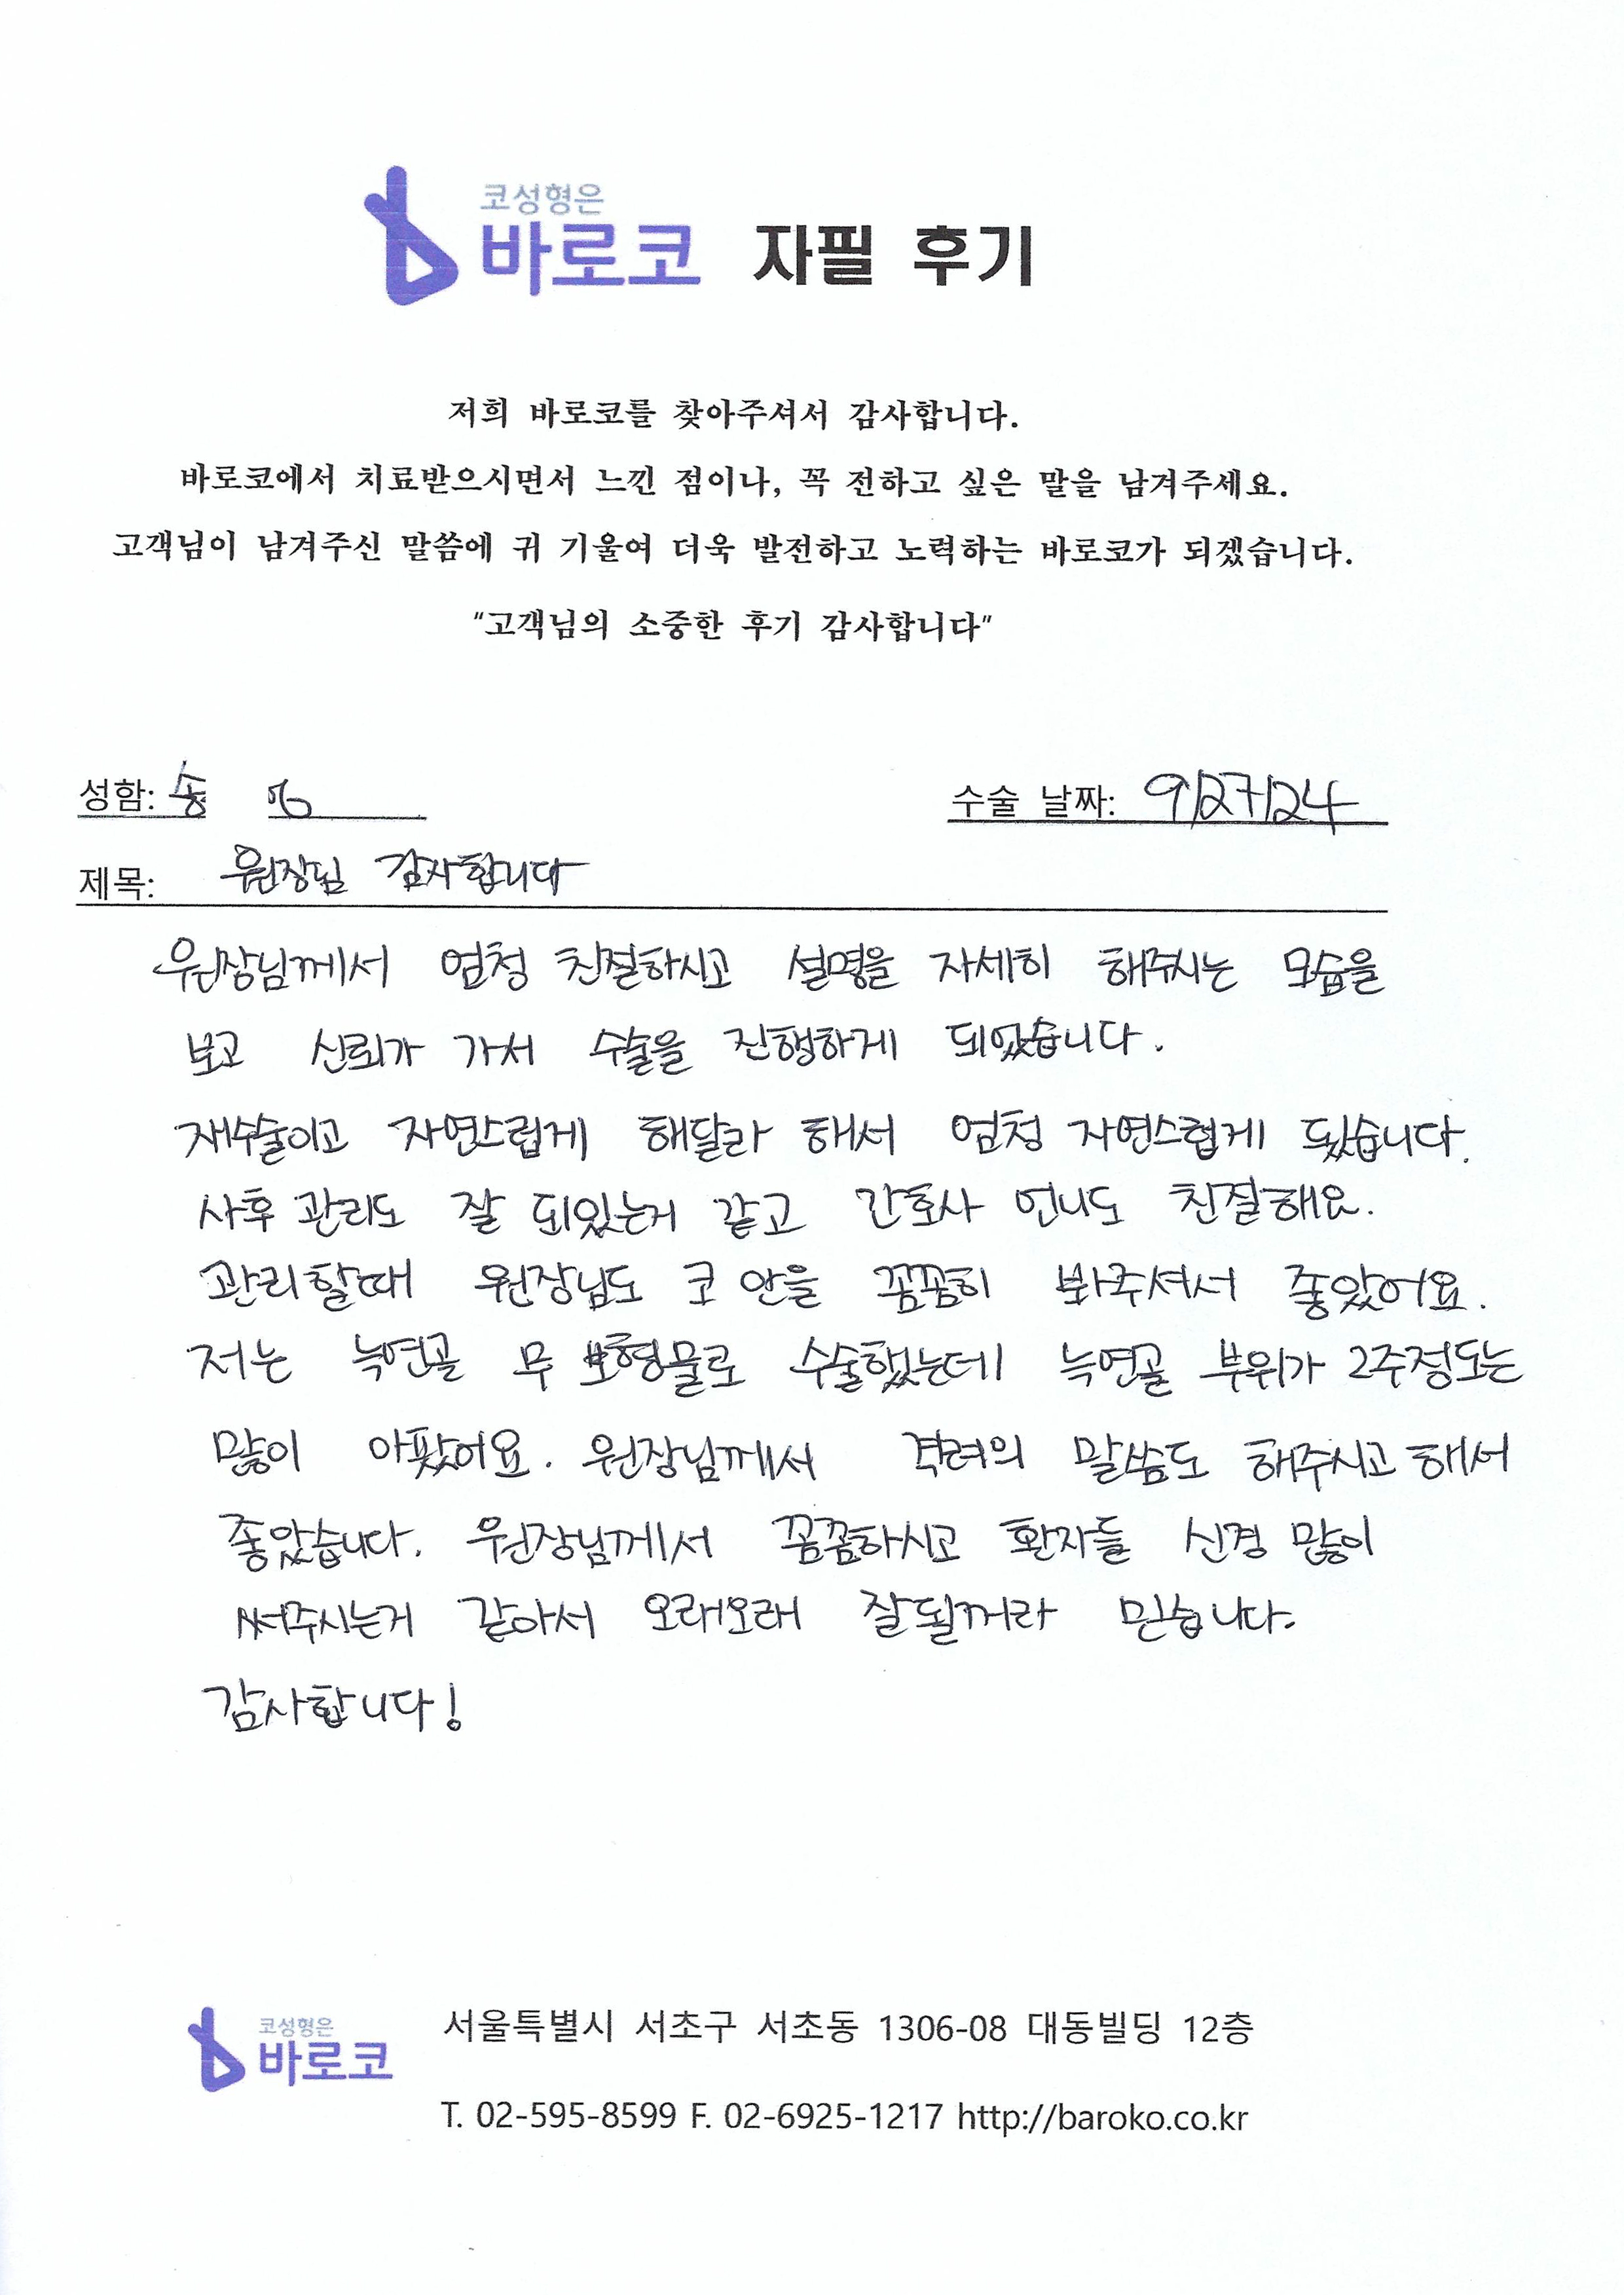 코성형은
바로코 자필 후기
저희 바로코를 찾아주셔서 감사합니다.
바로코에서 치료받으시면서 느낀 점이나, 꼭 전하고 싶은 말을 남겨주세요.
고객님이 남겨주신 말씀에 귀 기울여 더욱 발전하고 노력하는 바로코가 되겠습니다.
"고객님의 소중한 후기 감사합니다"
성함: 송 수술 날짜: 9/27/24
제목: 원장님 감사합니다
원장님께서 엄청 친절하시고 설명을 자세히 해주시는 모습을
보고 신뢰가 가서 수술을 진행하게 되었습니다.
재수술이고 자연스럽게 해달라 해서 엄청 자연스럽게 됐습니다.
사후 관리도 잘 되있는거 같고 간호사 언니도 친절해요.
관리할때 원장님도 코 안을 꼼꼼히 봐주셔서 좋았어요.
저는 늑연골 무 보형물로 수술했는데 늑연골 부위가 2주정도는
많이 아팠어요. 원장님께서 격려의 말씀도 해주시고 해서
좋았습니다. 원장님께서 꼼꼼하시고 환자들 신경 많이
써주시는거 같아서 오래오래 잘될꺼라 믿습니다.
감사합니다!
코성형은
바로코
서울특별시 서초구 서초동 1306-08 대동빌딩 12층
T. 02-595-8599 F. 02-6925-1217 http://baroko.co.kr